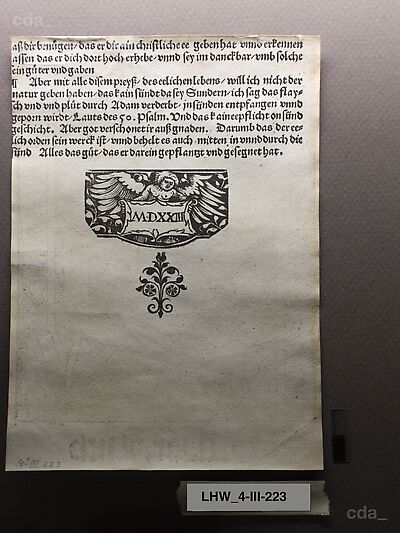 cda_
aß dir benügen/ das er dir ain christliche ee geben hat vnnd erkennen
assen das er dich dort hoch erhebe/ vnnd sey im danckbar/ vmb solche
ein güter vnd gaben
¶ Aber mit alle disem preyß/ des eelichen lebens/ will ich nicht der
natur geben haben/ das kain sündt da sey Sundern/ ich sag das flay-
sch vnd vnd plüt durch Adam verderbt/ in sünden entpfangen vnnd
geporn wirdt Lauts des 50. Psalm. Vnd das kain eepflicht on sünd
geschicht. Aber got verschonet ir auß gnaden. Darumb das der ee-
lich orden sein werck ist/ vnnd behelt es auch/ mitten/ in vnnd durch die
sünd Alles das güt/ das er darein gepflantzt vnd gesegnet hat.
M·D·XXIII
4° III 223
LHW_4-III-223
cda_